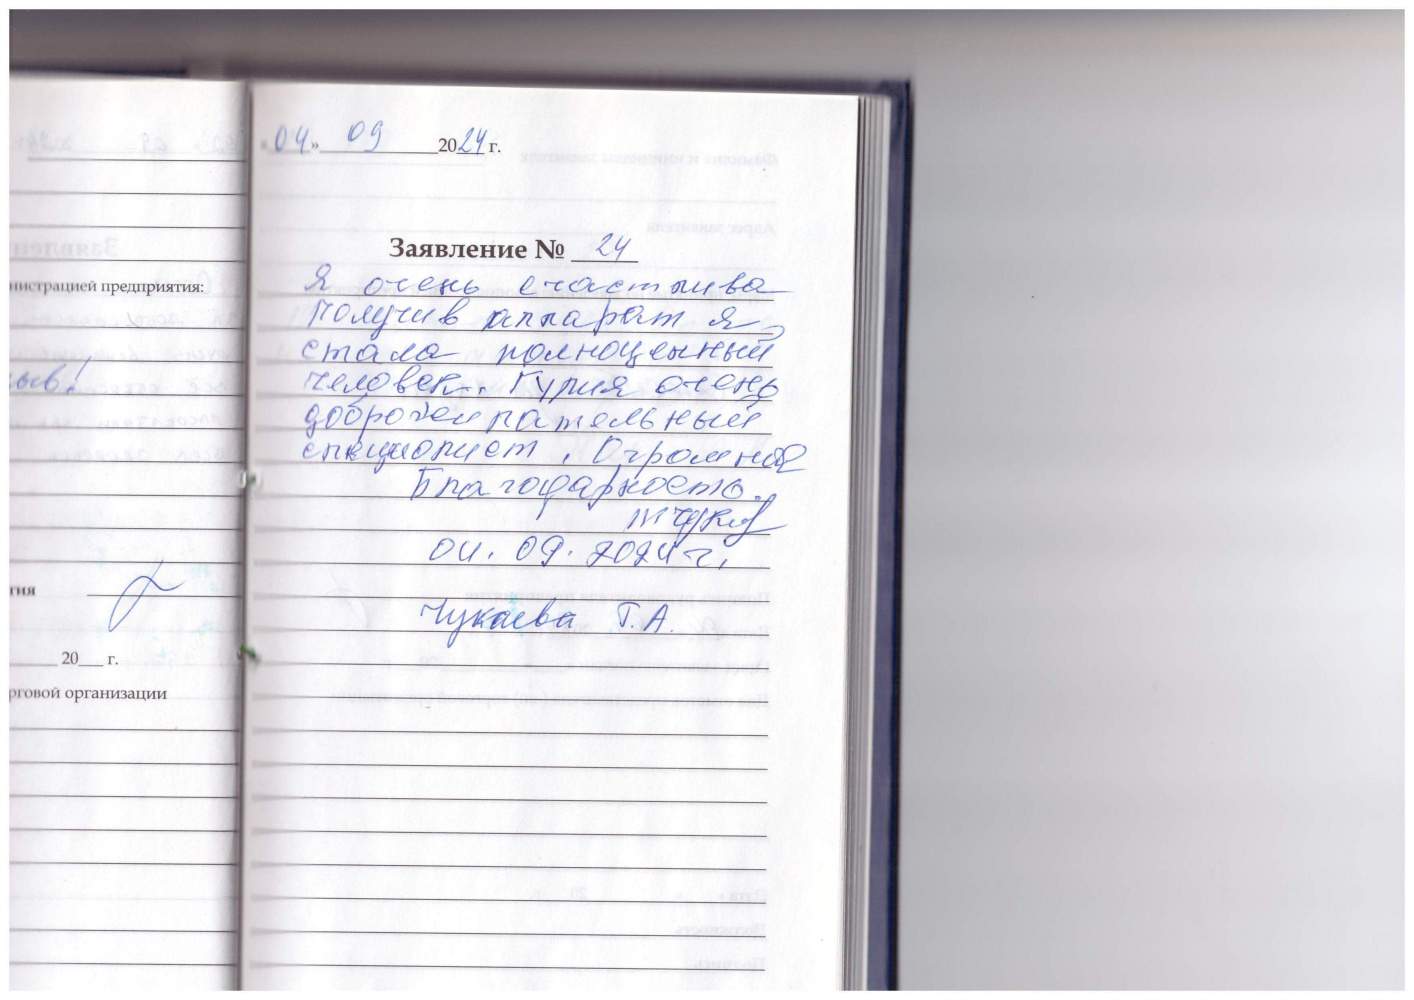 «04» 09 2024 г.
Заявление № 24
Я очень счастлива
получив аппарат я
стала полноценный
человек.. Гулия очень
доброжелательный
специалист. Огромная
Благодарность.
04.09.2024 г.
Чукаева Г.А.
нистрацией предприятия:
ыв!
тия
20 г.
рговой организации